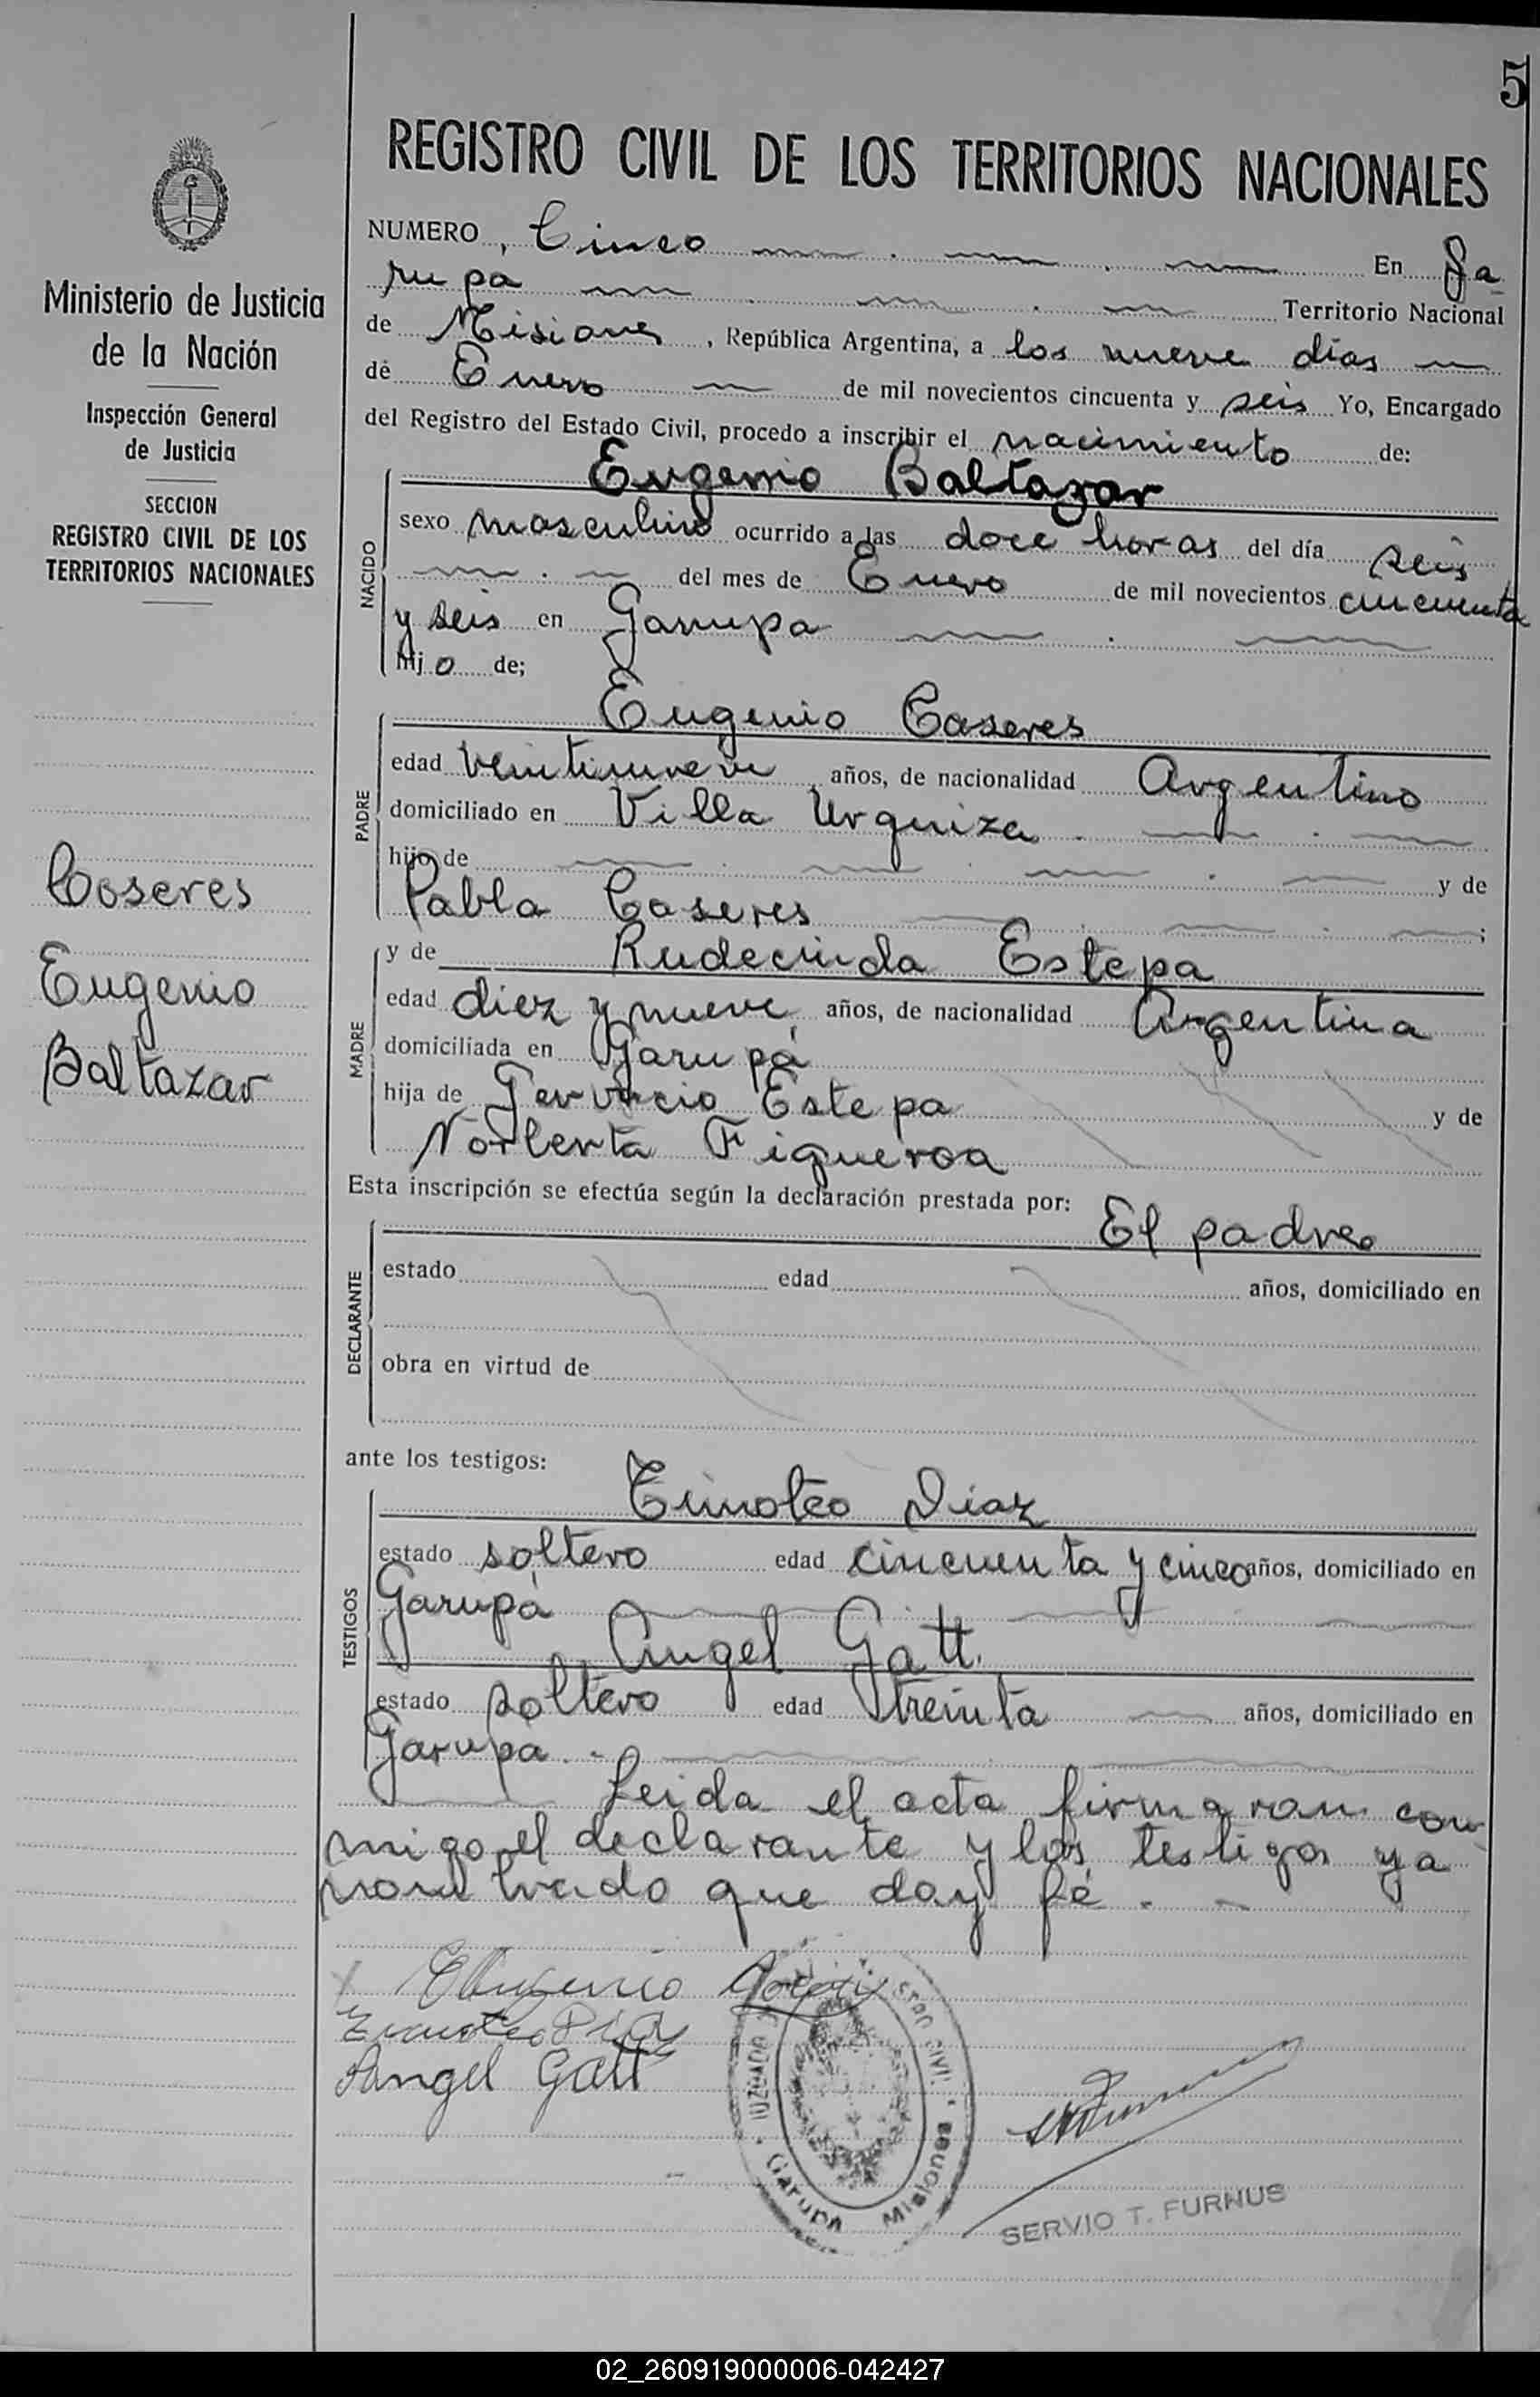 5
REGISTRO CIVIL DE LOS TERRITORIOS NACIONALES
Ministerio de Justicia
de la Nación
Inspección General
de Justicia
SECCION
REGISTRO CIVIL DE LOS
TERRITORIOS NACIONALES
Caseres
Eugenio
Baltazar
NUMERO Cinco En Ga
rupa Territorio Nacional
de Misiones, República Argentina, a los nueve dias
de Enero de mil novecientos cincuenta y seis Yo, Encargado
del Registro del Estado Civil, procedo a inscribir el nacimiento de:
Eugenio Baltazar
NACIDO
sexo masculino ocurrido a las doce horas del día seis
del mes de Enero de mil novecientos cincuenta
y seis en Garupa
hijo de;
Eugenio Caseres
PADRE
edad veintinueve años, de nacionalidad Argentino
domiciliado en Villa Urquiza
hijo de y de
Pabla Caseres ;
MADRE
y de Rudecinda Estepa
edad diez y nueve años, de nacionalidad Argentina
domiciliada en Garupá
hija de Estepa y de
Norberta Figueroa
Esta inscripción se efectúa según la declaración prestada por: El padre
DECLARANTE
estado edad años, domiciliado en
obra en virtud de
ante los testigos:
Timoteo Diaz
TESTIGOS
estado soltero edad cincuenta y cinco años, domiciliado en
Garupá
Angel Gatt.
estado soltero edad treinta años, domiciliado en
Garupa.-
Leida el acta firmaron con
migo el declarante y los testigos ya
que doy fé.-
Eugenio
Timoteo Diaz
Angel Gatt
JUZGADO CIVIL
Garupa Misiones
SERVIO T. FURNUS
02_260919000006-042427